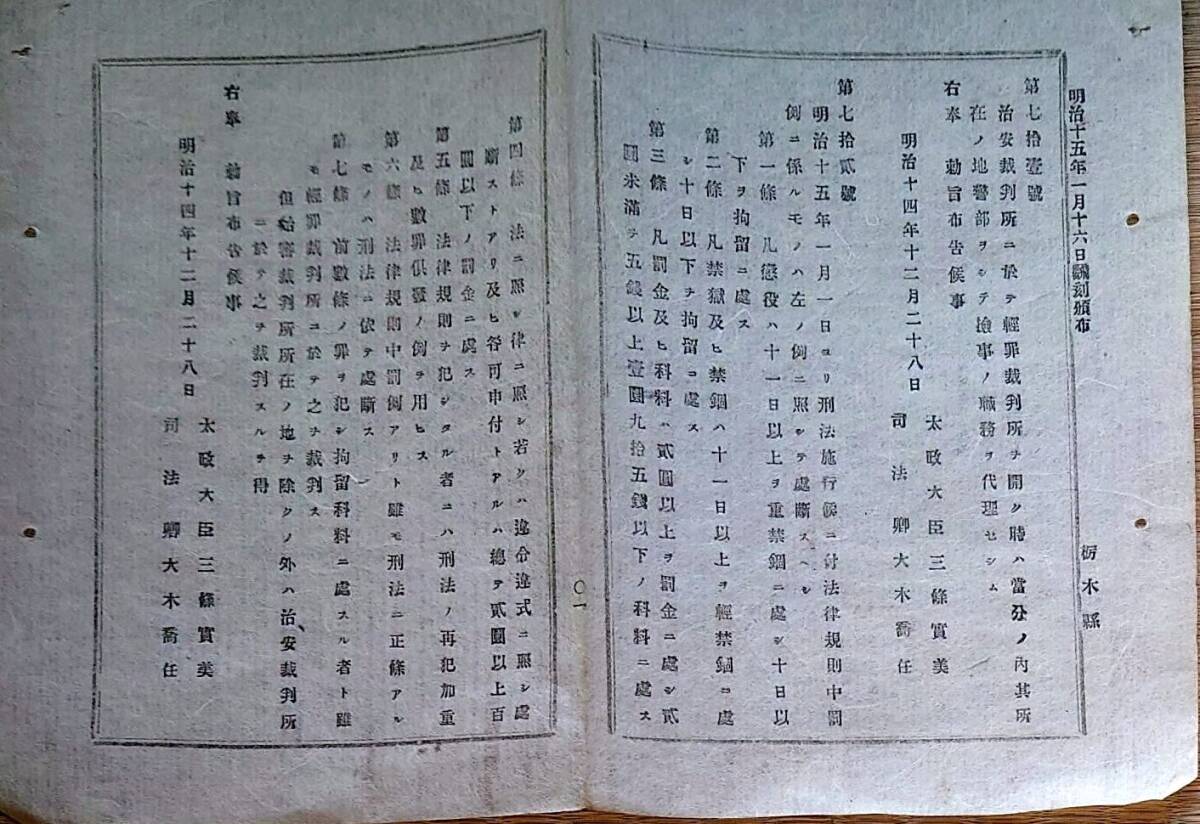 明治十五年一月十六日飜刻頒布
栃木縣
第七拾壹號
治安裁判所ニ於テ輕罪裁判所ヲ開ク時ハ當分ノ內其所
在ノ地警部ヲシテ撿事ノ職務ヲ代理セシム
右奉 勅旨布告候事
明治十四年十二月二十八日
太政大臣三條實美
司法卿大木喬任
第七拾貳號
明治十五年一月一日ヨリ刑法施行候ニ付法律規則中罰
例ニ係ルモノハ左ノ例ニ照シテ處斷スヘシ
第一條 凡懲役ハ十一日以上ヲ重禁錮ニ處シ十日以
下ヲ拘留ニ處ス
第二條 凡禁獄及ヒ禁錮ハ十一日以上ヲ輕禁錮ニ處
シ十日以下ヲ拘留ニ處ス
第三條 凡罰金及ヒ科料ハ貳圓以上ヲ罰金ニ處シ貳
圓未滿ヲ五錢以上壹圓九拾五錢以下ノ科料ニ處ス
〇一
第四條 法ニ照シ律ニ照シ若クハ違令違式ニ照シ處
斷ストアリ及ヒ咎可申付トアルハ總テ貳圓以上百
圓以下ノ罰金ニ處ス
第五條 法律規則ヲ犯シタル者ニハ刑法ノ再犯加重
及ヒ數罪俱發ノ例ヲ用ヒス
第六條 法律規則中罰例アリト雖モ刑法ニ正條アル
モノハ刑法ニ依テ處斷ス
第七條 前數條ノ罪ヲ犯シ拘留科料ニ處スル者ト雖
モ輕罪裁判所ニ於テ之ヲ裁判ス
但始審裁判所所在ノ地ヲ除クノ外ハ治安裁判所
ニ於テ之ヲ裁判スルヲ得
右奉 勅旨布告候事
明治十四年十二月二十八日
太政大臣三條實美
司法卿大木喬任